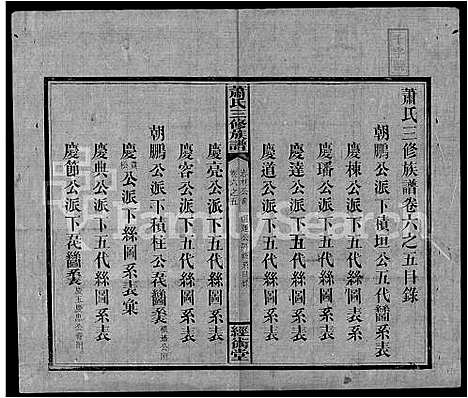 蕭氏三修族譜卷六之五目錄
朝鵬公派下積垣公五代絲圖系表
慶棟公派下五代絲圖系表
慶璠公派下五代絲圖系表
慶達公派下五代絲圖系表
慶道公派下五代絲圖系表
蕭氏三修族譜
卷六之五
經術堂
慶亮公派下五代絲圖系表
慶容公派下五代絲圖系表
朝鵬公派下積柱公五代絲圖系表
慶公派下絲圖系表彙
慶典公派下五代絲圖系表
慶節公派下五代絲圖系表
FamilySearch